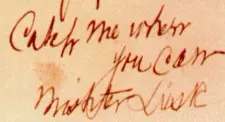 Catch me when
you Can
Mishter Lusk